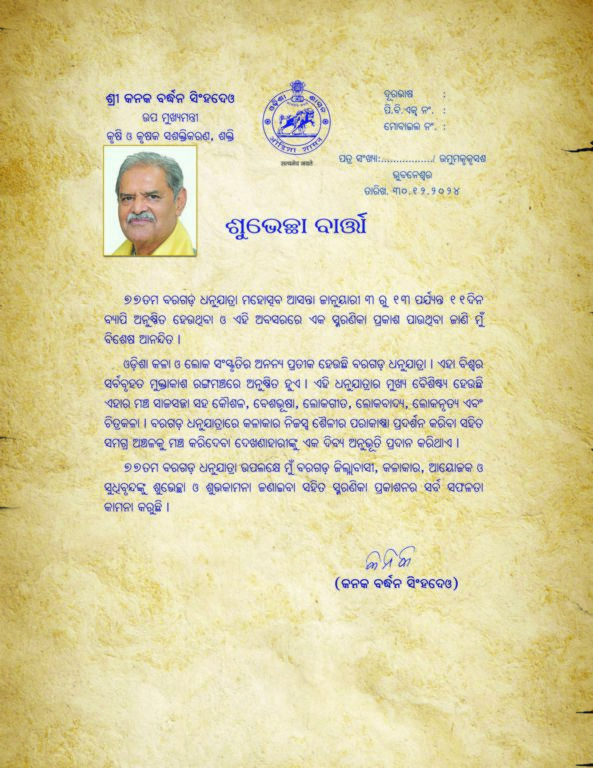 ଶ୍ରୀ କନକ ବର୍ଦ୍ଧନ ସିଂହଦେଓ
ଉପ ମୁଖ୍ୟମନ୍ତ୍ରୀ
କୃଷି ଓ କୃଷକ ସଶକ୍ତିକରଣ, ଶକ୍ତି
ଓଡ଼ିଶା ଶାସନ
सत्यमेव जयते
ଦୂରଭାଷ :
ପି.ବି.ଏକ୍ସ ନଂ. :
ମୋବାଇଲ ନଂ. :
ପତ୍ର ସଂଖ୍ୟା:................/ ଉମୁମକୃକୃସଶ
ଭୁବନେଶ୍ୱର
ତାରିଖ. ୩୦.୧୨.୨୦୨୪
ଶୁଭେଚ୍ଛା ବାର୍ତ୍ତା
୭୭ତମ ବରଗଡ଼ ଧନୁଯାତ୍ରା ମହୋତ୍ସବ ଆସନ୍ତା ଜାନୁୟାରୀ ୩ ରୁ ୧୩ ପର୍ଯ୍ୟନ୍ତ ୧୧ଦିନ
ବ୍ୟାପି ଅନୁଷ୍ଠିତ ହେଉଥିବା ଓ ଏହି ଅବସରରେ ଏକ ସ୍ମରଣିକା ପ୍ରକାଶ ପାଉଥିବା ଜାଣି ମୁଁ
ବିଶେଷ ଆନନ୍ଦିତ ।
ଓଡ଼ିଶା କଳା ଓ ଲୋକ ସଂସ୍କୃତିର ଅନନ୍ୟ ପ୍ରତୀକ ହେଉଛି ବରଗଡ଼ ଧନୁଯାତ୍ରା । ଏହା ବିଶ୍ୱର
ସର୍ବବୃହତ ମୁକ୍ତାକାଶ ରଙ୍ଗମଞ୍ଚରେ ଅନୁଷ୍ଠିତ ହୁଏ । ଏହି ଧନୁଯାତ୍ରାର ମୁଖ୍ୟ ବୈଶିଷ୍ଟ୍ୟ ହେଉଛି
ଏହାର ମଞ୍ଚ ସାଜସଜ୍ଜା ସହ କୌଶଳ, ବେଶଭୂଷା, ଲୋକଗୀତ, ଲୋକବାଦ୍ୟ, ଲୋକନୃତ୍ୟ ଏବଂ
ଚିତ୍ରକଳା । ବରଗଡ଼ ଧନୁଯାତ୍ରାରେ କଳାକାର ନିଜସ୍ୱ ଶୈଳୀର ପରାକାଷ୍ଠା ପ୍ରଦର୍ଶନ କରିବା ସହିତ
ସମଗ୍ର ଅଞ୍ଚଳକୁ ମଞ୍ଚ କରିଦେବା ଦେଖଣାହାରୀଙ୍କୁ ଏକ ଦିବ୍ୟ ଅନୁଭୂତି ପ୍ରଦାନ କରିଥାଏ ।
୭୭ତମ ବରଗଡ଼ ଧନୁଯାତ୍ରା ଉପଲକ୍ଷେ ମୁଁ ବରଗଡ଼ ଜିଲ୍ଲାବାସୀ, କଳାକାର, ଆୟୋଜକ ଓ
ସୁଧିବୃନ୍ଦଙ୍କୁ ଶୁଭେଚ୍ଛା ଓ ଶୁଭକାମନା ଜଣାଇବା ସହିତ ସ୍ମରଣିକା ପ୍ରକାଶନର ସର୍ବ ସଫଳତା
କାମନା କରୁଛି ।
(କନକ ବର୍ଦ୍ଧନ ସିଂହଦେଓ)